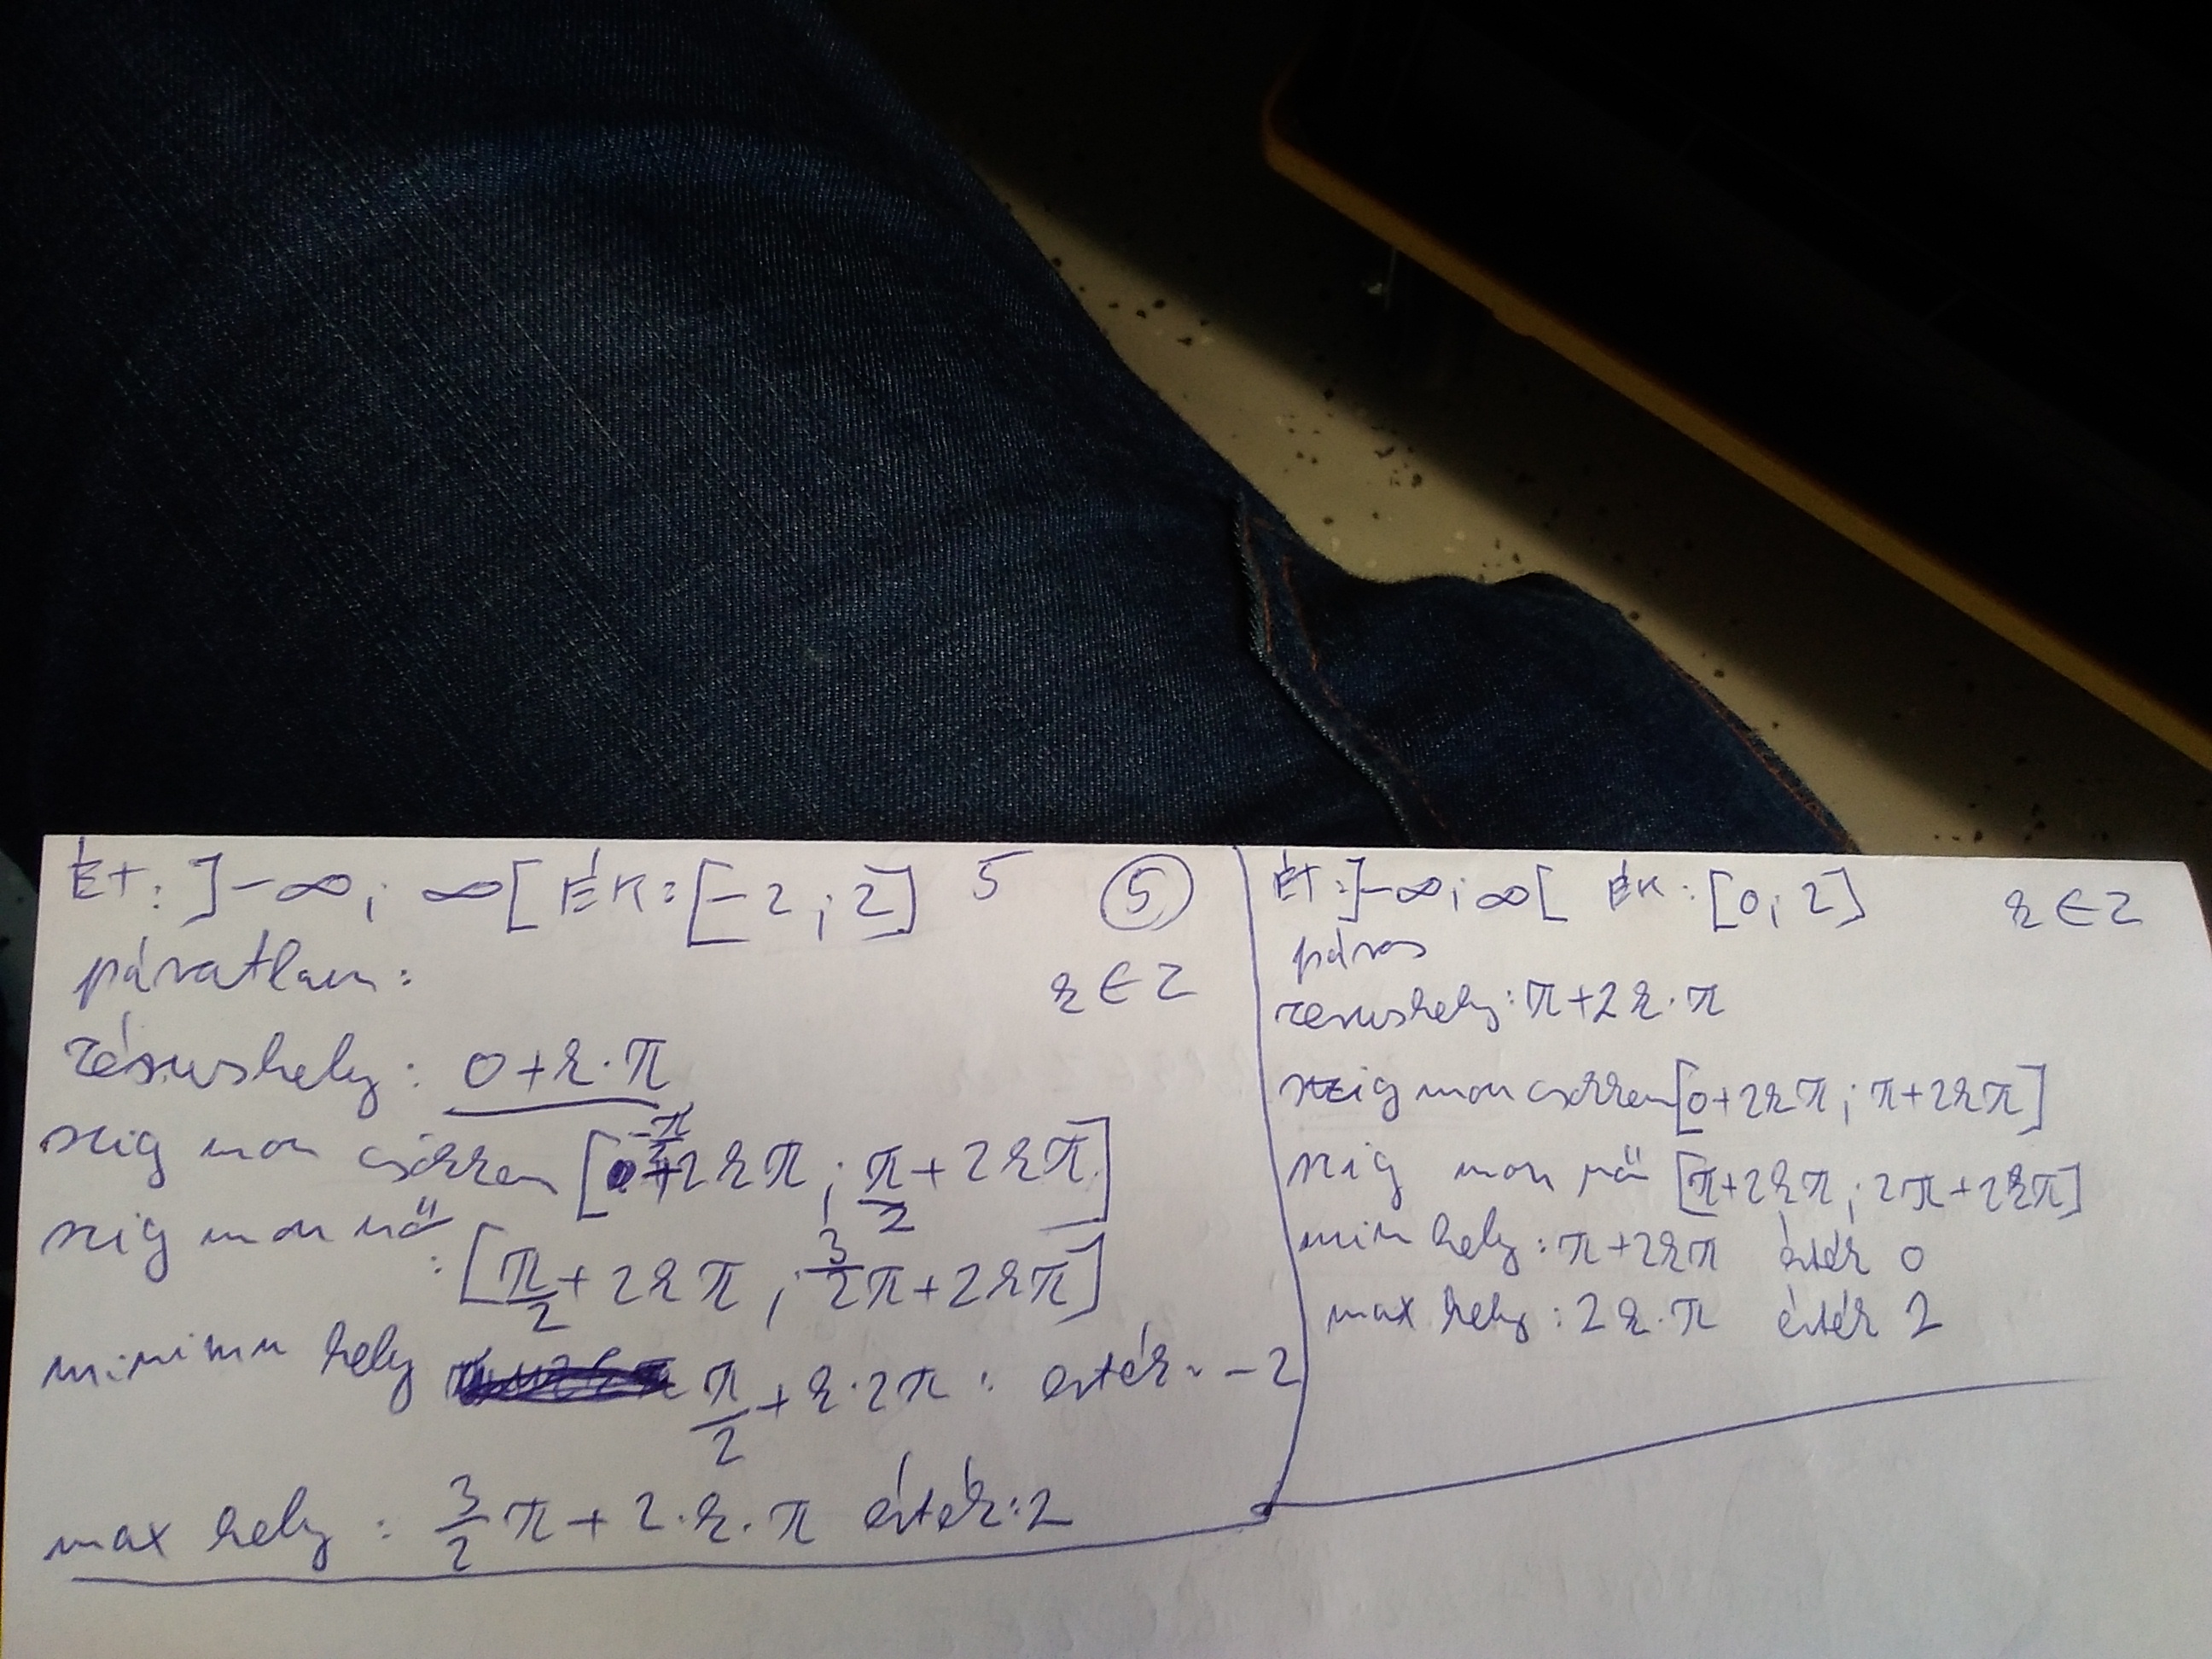 ÉT: ]-∞; ∞[ ÉK: [-2; 2] 5 ⑤
páratlan:
k ∈ Z
zérushely: 0+k·π
szig mon csökken [-π/2+2kπ; π/2+2kπ]
szig mon nő
: [π/2+2kπ; 3/2π+2kπ]
minimum hely π/2+k·2π: érték: -2
max hely: 3/2π+2·k·π érték: 2
ÉT: ]-∞; ∞[ ÉK: [0; 2] k ∈ Z
páros
zérushely: π+2k·π
szig mon csökken [0+2kπ; π+2kπ]
szig mon nő [π+2kπ; 2π+2kπ]
min hely: π+2kπ érték 0
max hely: 2k·π érték 2